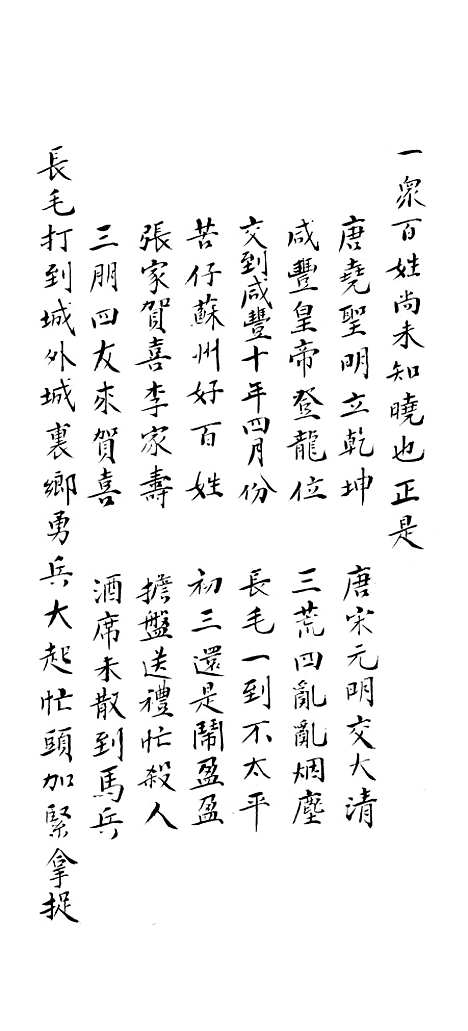 一衆百姓尚未知曉也正是
唐堯聖明立乾坤　唐宋元明交大清
咸豐皇帝登龍位　三荒四亂亂烟塵
交到咸豐十年四月份　長毛一到不太平
苦仔蘇州好百姓　初三還是鬧盈盈
張家賀喜李家壽　擔盤送禮忙殺人
三朋四友來賀喜　酒席未散到馬兵
長毛打到城外城裏鄉勇兵大起忙頭加緊拿捉